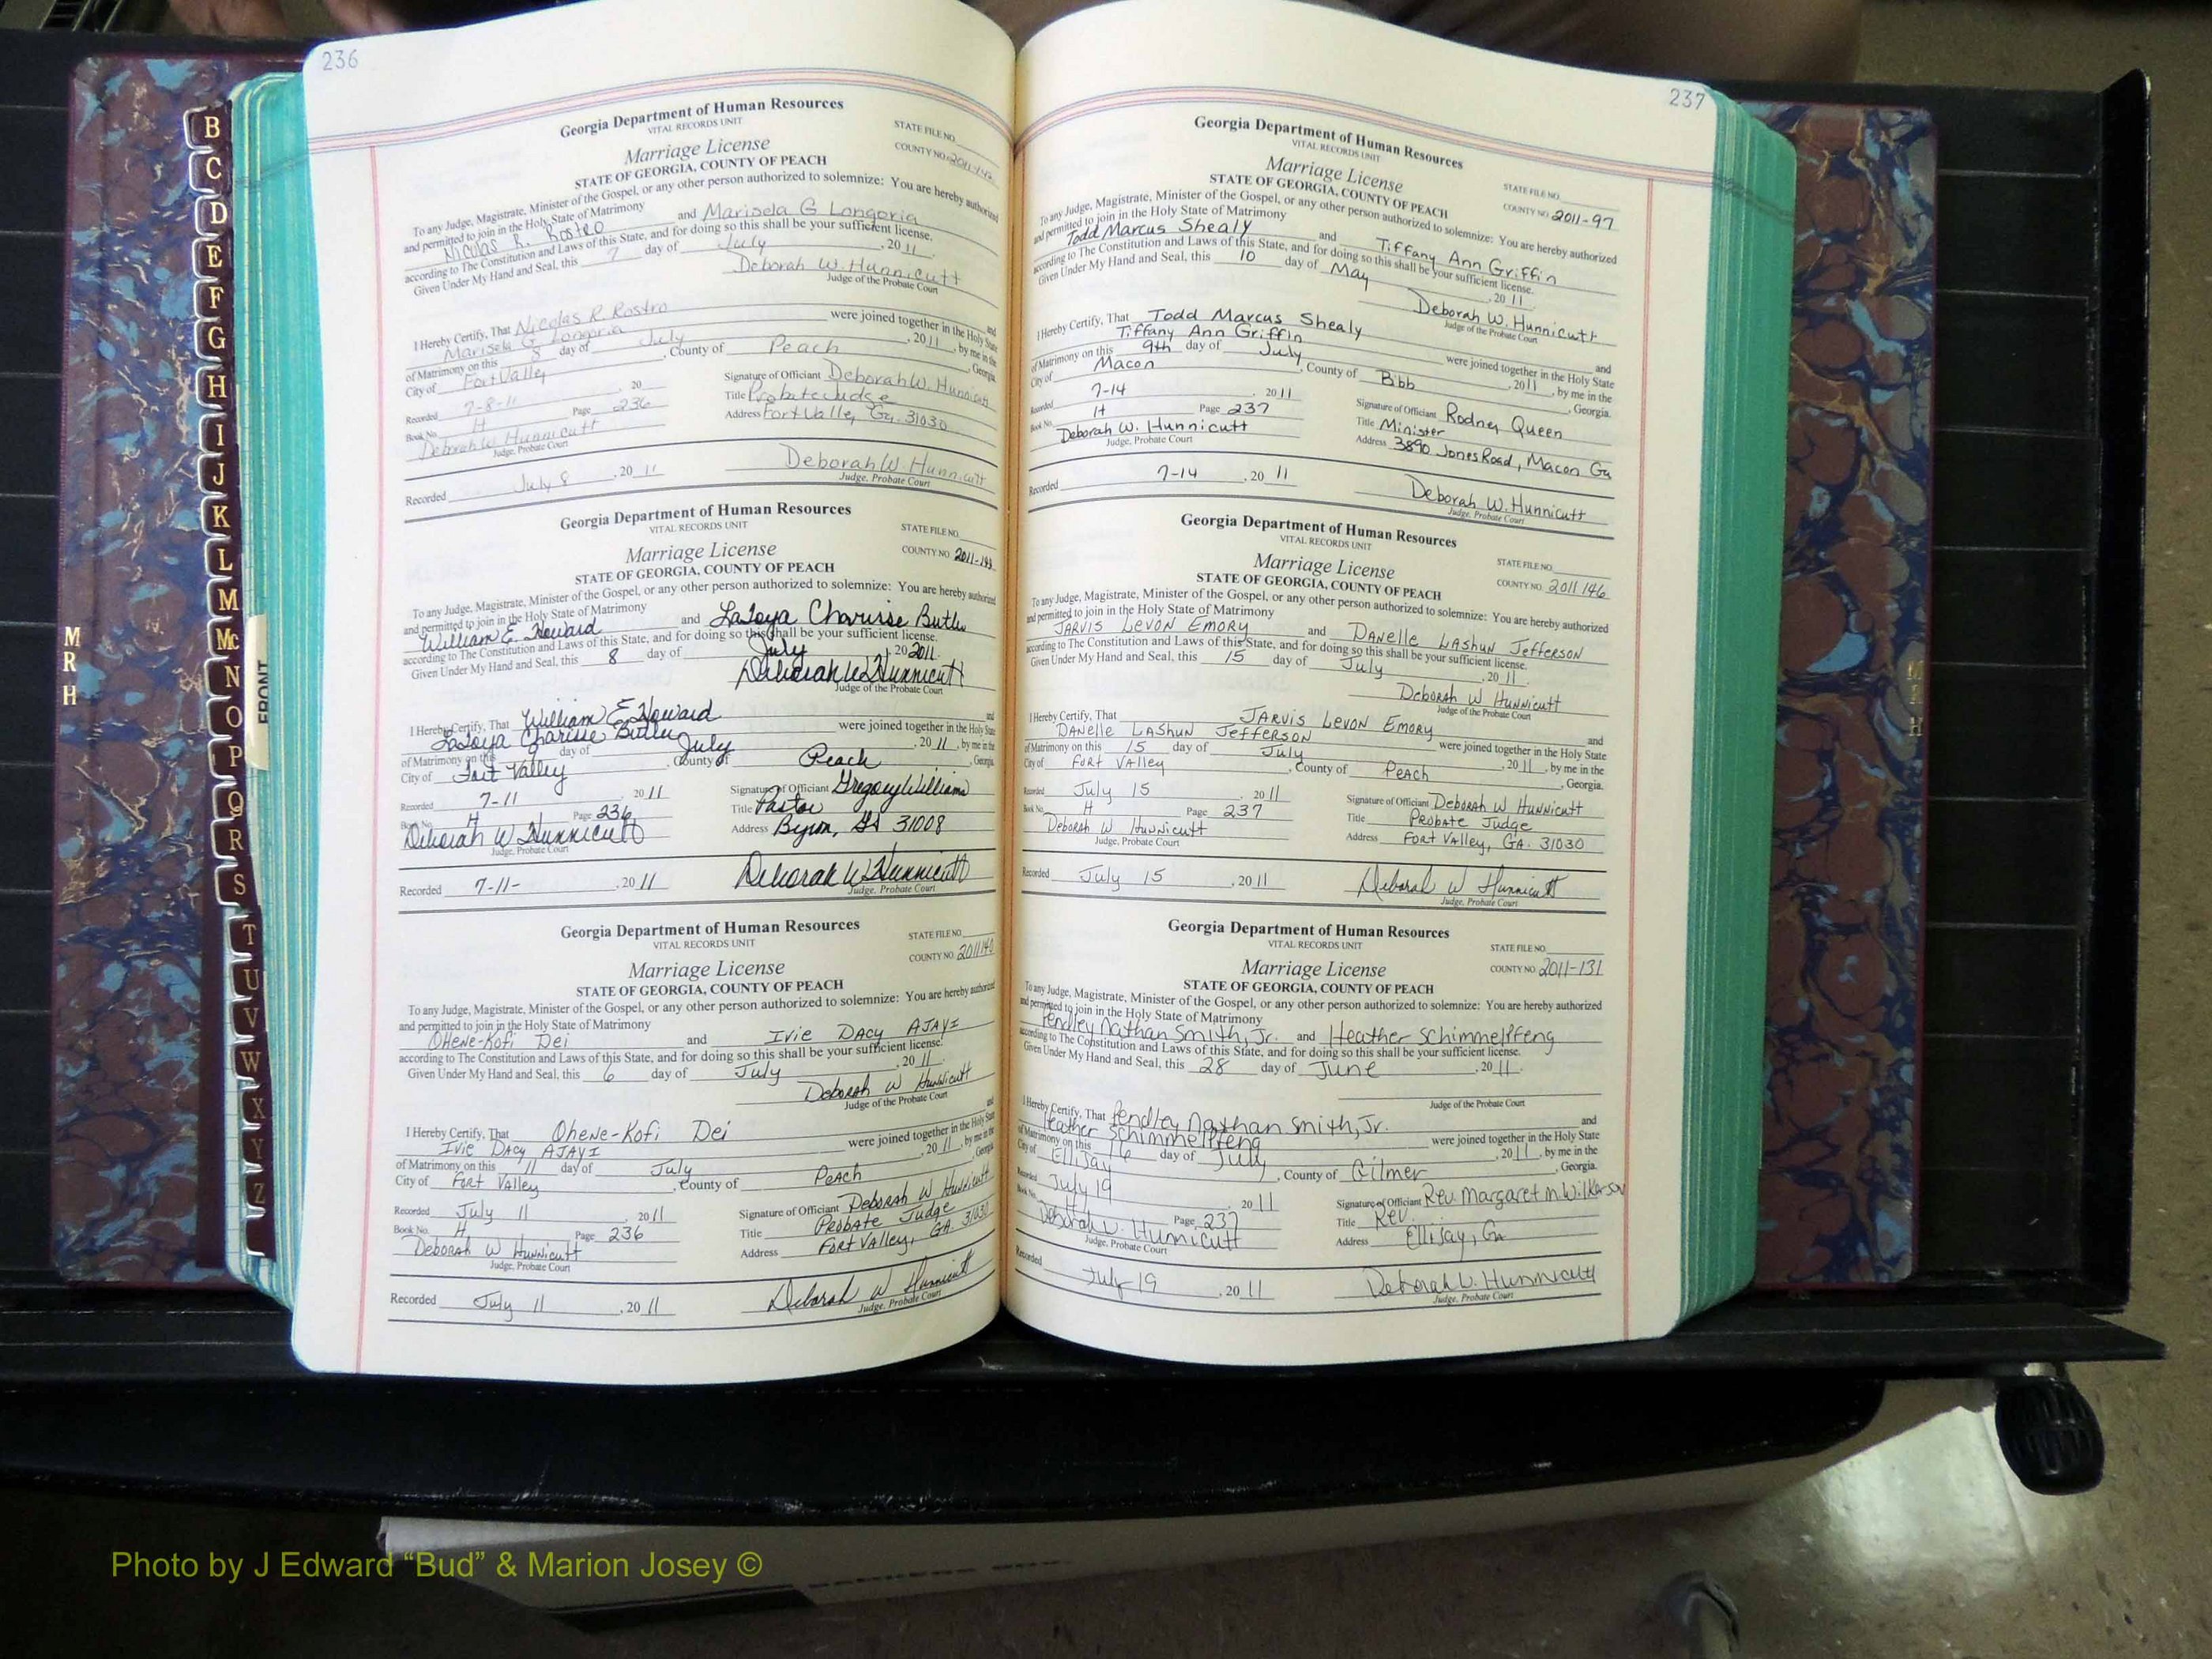 236
Georgia Department of Human Resources
VITAL RECORDS UNIT
STATE FILE NO.
Marriage License
COUNTY NO. 2011-142
STATE OF GEORGIA, COUNTY OF PEACH
To any Judge, Magistrate, Minister of the Gospel, or any other person authorized to solemnize: You are hereby authorized
and permitted to join in the Holy State of Matrimony
Nicolas R. Rostro and Marisela G Longoria
according to The Constitution and Laws of this State, and for doing so this shall be your sufficient license.
Given Under My Hand and Seal, this 7 day of July, 2011.
Deborah W. Hunnicutt
Judge of the Probate Court
I Hereby Certify, That Nicolas R. Rostro and
Marisela G Longoria were joined together in the Holy State
of Matrimony on this 8 day of July, 2011, by me in the
City of Fort Valley, County of Peach, Georgia.
Recorded 7-8-11, 20
Signature of Officiant Deborah W. Hunnicutt
Book No. H Page 236
Title Probate Judge
Deborah W Hunnicutt
Address Fort Valley Ga. 31030
Judge, Probate Court
Recorded July 8, 2011
Deborah W. Hunnicutt
Judge, Probate Court
Georgia Department of Human Resources
VITAL RECORDS UNIT
STATE FILE NO.
Marriage License
COUNTY NO. 2011-143
STATE OF GEORGIA, COUNTY OF PEACH
To any Judge, Magistrate, Minister of the Gospel, or any other person authorized to solemnize: You are hereby authorized
and permitted to join in the Holy State of Matrimony
William E. Howard and LaToya Charisse Butler
according to The Constitution and Laws of this State, and for doing so this shall be your sufficient license.
Given Under My Hand and Seal, this 8 day of July, 20 2011.
Deborah W Hunnicutt
Judge of the Probate Court
I Hereby Certify, That William E Howard and
LaToya Charisse Butler were joined together in the Holy State
of Matrimony on this day of July, 2011, by me in the
City of Fort Valley, County of Peach, Georgia.
Recorded 7-11 2011
Signature of Officiant Gregory Williams
Book No. H Page 236
Title Pastor
Deborah W Hunnicutt
Address Byron, GA 31008
Judge, Probate Court
Recorded 7-11-, 2011
Deborah W Hunnicutt
Judge, Probate Court
Georgia Department of Human Resources
VITAL RECORDS UNIT
STATE FILE NO.
Marriage License
COUNTY NO.
STATE OF GEORGIA, COUNTY OF PEACH
To any Judge, Magistrate, Minister of the Gospel, or any other person authorized to solemnize: You are hereby authorized
and permitted to join in the Holy State of Matrimony
Ohene-Kofi Dei and Ivie Dacy AJAYI
according to The Constitution and Laws of this State, and for doing so this shall be your sufficient license.
Given Under My Hand and Seal, this 6 day of July, 2011.
Deborah W Hunnicutt
Judge of the Probate Court
I Hereby Certify, That Ohene-Kofi Dei and
Ivie Dacy AJAYI were joined together in the Holy State
of Matrimony on this 11 day of July, 2011, by me in the
City of Fort Valley, County of Peach, Georgia
Recorded July 11, 2011
Signature of Officiant Deborah W Hunnicutt
Book No. H Page 236
Title Probate Judge
Deborah W Hunnicutt
Address Fort Valley, GA. 31030
Judge, Probate Court
Recorded July 11, 2011
Deborah W Hunnicutt
Judge, Probate Court
237
Georgia Department of Human Resources
VITAL RECORDS UNIT
STATE FILE NO.
Marriage License
COUNTY NO. 2011-97
STATE OF GEORGIA, COUNTY OF PEACH
To any Judge, Magistrate, Minister of the Gospel, or any other person authorized to solemnize: You are hereby authorized
and permitted to join in the Holy State of Matrimony
Todd Marcus Shealy and Tiffany Ann Griffin
according to The Constitution and Laws of this State, and for doing so this shall be your sufficient license.
Given Under My Hand and Seal, this 10 day of May, 2011.
Deborah W. Hunnicutt
Judge of the Probate Court
I Hereby Certify, That Todd Marcus Shealy and
Tiffany Ann Griffin were joined together in the Holy State
of Matrimony on this 9th day of July, 2011, by me in the
City of Macon, County of Bibb, Georgia.
Recorded 7-14, 2011
Signature of Officiant Rodney Queen
Book No. H Page 237
Title Minister
Deborah W. Hunnicutt
Address 3890 Jones Road, Macon Ga
Judge, Probate Court
Recorded 7-14, 2011
Deborah W. Hunnicutt
Judge, Probate Court
Georgia Department of Human Resources
VITAL RECORDS UNIT
STATE FILE NO.
Marriage License
COUNTY NO. 2011 146
STATE OF GEORGIA, COUNTY OF PEACH
To any Judge, Magistrate, Minister of the Gospel, or any other person authorized to solemnize: You are hereby authorized
and permitted to join in the Holy State of Matrimony
JARVIS LEVON EMORY and DANelle LAShun Jefferson
according to The Constitution and Laws of this State, and for doing so this shall be your sufficient license.
Given Under My Hand and Seal, this 15 day of July, 2011.
Deborah W Hunnicutt
Judge of the Probate Court
I Hereby Certify, That JARVIS LEVON EMORY and
DANelle LAShun Jefferson were joined together in the Holy State
of Matrimony on this 15 day of July, 2011, by me in the
City of Fort Valley, County of Peach, Georgia.
Recorded July 15, 2011
Signature of Officiant Deborah W Hunnicutt
Book No. H Page 237
Title Probate Judge
Deborah W Hunnicutt
Address Fort Valley, GA. 31030
Judge, Probate Court
Recorded July 15, 2011
Deborah W Hunnicutt
Judge, Probate Court
Georgia Department of Human Resources
VITAL RECORDS UNIT
STATE FILE NO.
Marriage License
COUNTY NO. 2011-131
STATE OF GEORGIA, COUNTY OF PEACH
To any Judge, Magistrate, Minister of the Gospel, or any other person authorized to solemnize: You are hereby authorized
and permitted to join in the Holy State of Matrimony
Pendley Nathan Smith, Jr. and Heather Schimmelpfeng
according to The Constitution and Laws of this State, and for doing so this shall be your sufficient license.
Given Under My Hand and Seal, this 28 day of June, 2011.
Judge of the Probate Court
I Hereby Certify, That Pendley Nathan Smith, Jr. and
Heather Schimmelpfeng were joined together in the Holy State
of Matrimony on this 16 day of July, 2011, by me in the
City of Ellijay, County of Gilmer, Georgia.
Recorded July 19 2011
Signature of Officiant Rev Margaret M Wilkerson
Book No. Page 237
Title Rev.
Deborah W. Hunnicutt
Address Ellijay, Ga
Judge, Probate Court
Recorded July 19, 2011
Deborah W. Hunnicutt
Judge, Probate Court
B
C
D
E
F
G
H
I
J
K
L
M
Mc
N
O
P
Q
R
S
T
U
V
W
X
Y
Z
FRONT
M
R
H
Photo by J Edward “Bud” & Marion Josey ©